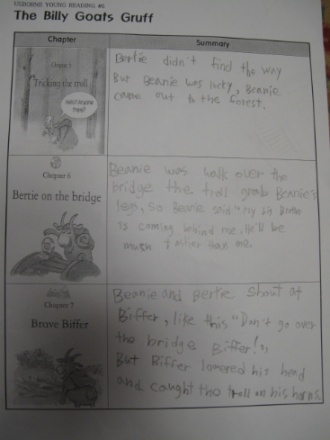 USBORNE YOUNG READING #6
The Billy Goats Gruff
Chapter
Summary
Tricking the troll
Bertie didn't find the way
But Beanie was lucky, Beanie
came out to the forest.
Chapter 6
Bertie on the bridge
Beanie was walk over the
bridge the troll grabs Beanie's
legs, so Beanie said
is coming behind me. He'll be
much than me.
Chapter 7
Brave Biffer
Beanie and Bertie shout at
Biffer, like this "Don't go over
the bridge Biffer!"
But Biffer lowered his head
and caught the troll on his horns.